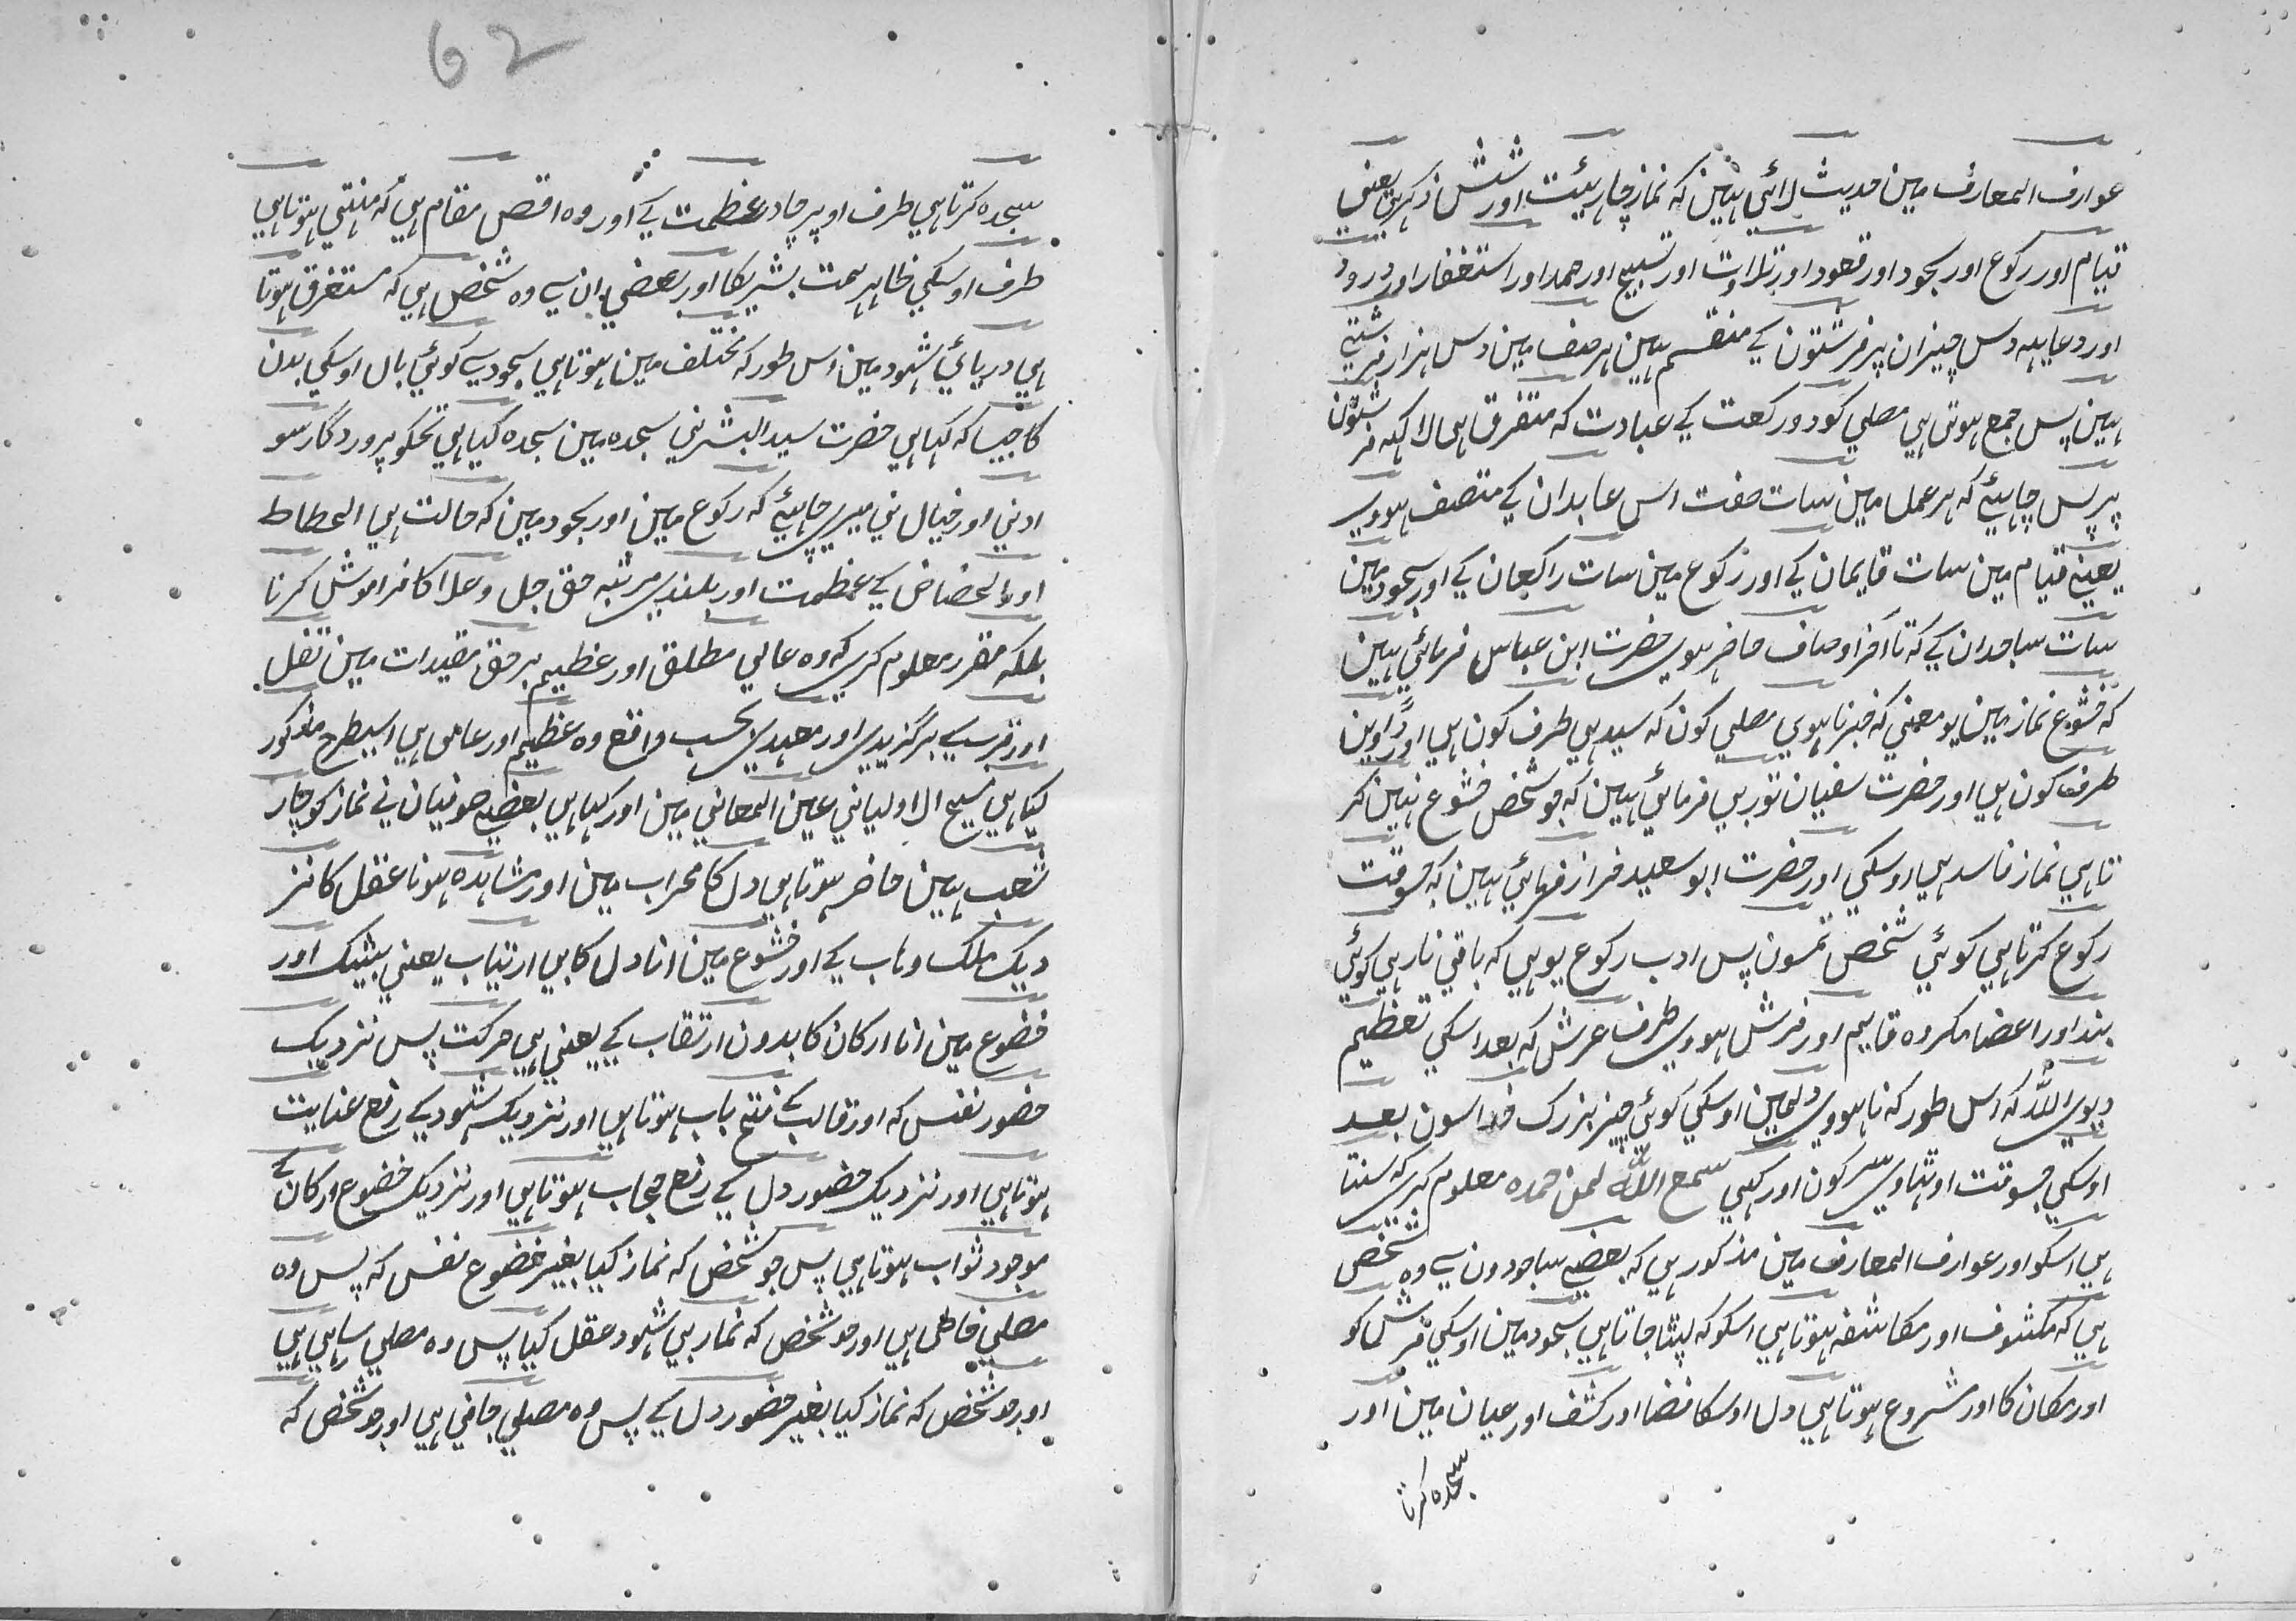 عوارف المعارف مین حدیث لائی ہین کہ نماز چار ہیئت اور شش ذکر ہی یعنی
قیام اور رکوع اور سجود اور قعود اور تلاوت اور تسبیح اور حمد اور استغفار اور درود
اور دعا یہہ دس چیزان پر فرشتون کے منقسم ہین ہر صف مین دس ہزار فرشتے
ہین پس جمع ہوتی ہی مصلی کو دو رکعت کے عبادت کہ متفرق ہی لاکہہ فرشتون
پر پس چاہیئے کہ ہر عمل مین سات صفت اس عابدان کے متصف ہووے
یعنے قیام مین سات قایمان کے اور رکوع مین سات راکعان کے اور سجود مین
سات ساجدان کے کہ تا آخر اوصاف حاضر ہوی حضرت ابن عباس فرمائی ہین
کہ خشوع نماز مین یو معنی کہ خبر نا ہوی مصلی کون کہ سیدہی طرف کون ہی اور ڈاوین
طرف کون ہی اور حضرت سفیان ثوری فرمائی ہین کہ جو شخص خشوع نہین کر
تا ہی نماز فاسد ہی اوسکی اور حضرت ابو سعید خراز فرمائی ہین کہ جسوقت
رکوع کرتا ہی کوئی شخص تمسون پس ادب رکوع یو ہی کہ باقی نا رہی کوئی
بند اور اعضا مکر وہ قایم اور فرش ہووی طرف عرش کہ بعد اسکی تعظیم
دیوی اللہ کہ اس طور کہ نا ہووی دلمین اوسکی کوئی چیز بزرک خدا سون بعد
اوسکی جسوقت اوٹہاوی سر کون اور کہی سمع اللہ لمن حمدہ معلوم کری کہ سنتا
ہی اسکو اور عوارف المعارف مین مذکور ہی کہ بعضی ساجدون سے وہ شخص
ہی کہ مکشوف اور مکاشفہ ہوتا ہی اسکو کہ لپٹا جاتا ہی سجود مین اوسکی فرش کو
اور مکان کا اور شروع ہوتا ہی دل اوسکا فضا اور کشف اور عیان مین اور
سجدہ کرتا
62
سجدہ کرتا ہی طرف اوپر چادر عظمت کے اور وہ اقصی مقام ہی کہ منتہی ہوتا ہی
طرف اوسکی ظاہر سمت بشریکا اور بعضی ان سے وہ شخص ہی کہ مستغرق ہوتا
ہی دریائی شہود مین اس طور کہ مختلف مین ہوتا ہی سجود سے کوئی بال اوسکی بدن
کا جیسا کہ کہا ہی حضرت سید البشر نی سجدہ مین سجدہ کیا ہی تجکو پروردگار سو
ادنی اور خیال نی میری چاہیئے کہ رکوع مین اور سجود مین کہ حالت ہی انحطاط
اور انخفاض کے عظمت اور بلندی مرتبہ حق جل و علا کا فراموش کرنا
بلکہ مقرر معلوم کری کہ وہ عالی مطلق اور عظیم برحق مقیدات مین تفل
اور قرب کے برگزیدی اور معبدی بحسب واقع وہ عظیم اور عالی ہی اسیطرح مذکور
کیا ہی مسیح الاولیا نی عین المعانی مین اور کہا ہی بعضی صوفیان نی نماز کو چار
شعب ہین حاضر ہوتا ہی دل کا محراب مین اور مشاہدہ ہونا عقل کا نز
دیک ملک وہاب کے اور خشوع مین انا دل کا بی ارتیاب یعنی بیشک اور
خضوع مین انا ارکان کا بدون ارتقاب کے یعنی بی حرکت پس نزدیک
حضور نفس کہ اور قالب کے فتح باب ہوتا ہی اور نزدیک شہود کے رفع عنایت
ہوتا ہی اور نزدیک حضور دل کے رفع حجاب ہوتا ہی اور نزدیک خضوع ارکان کے
موجود ثواب ہوتا ہی پس جو شخص کہ نماز کیا بغیر خضوع نفس کہ پس وہ
مصلی خاطی ہی اور جو شخص کہ نماز بی شہود عقل کیا پس وہ مصلی ساہی ہی
اور جو شخص کہ نماز کیا بغیر حضور دل کے پس وہ مصلی جافی ہی اور جو شخص کہ